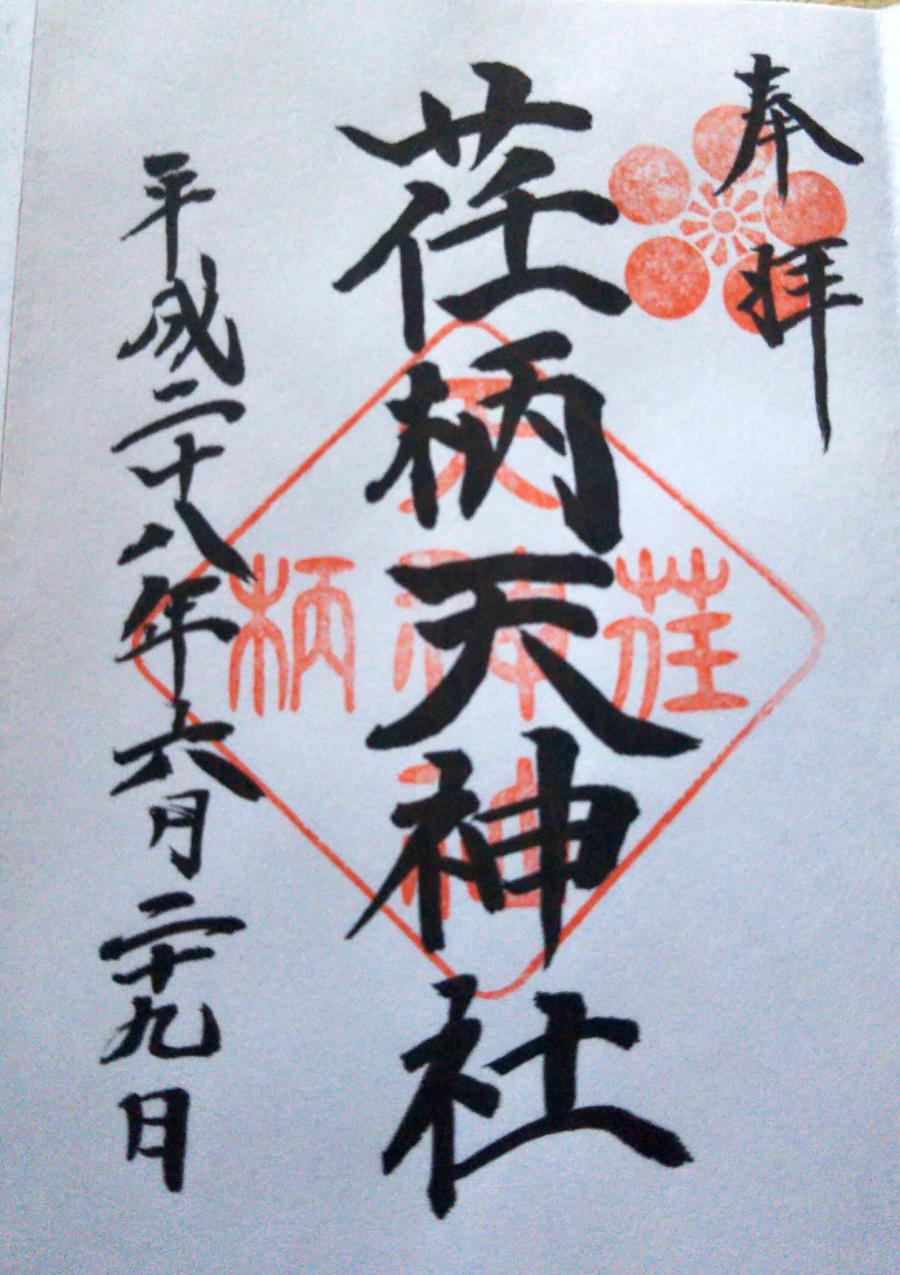 奉拝
荏柄天神社
平成二十八年六月二十九日
天
荏神柄
社